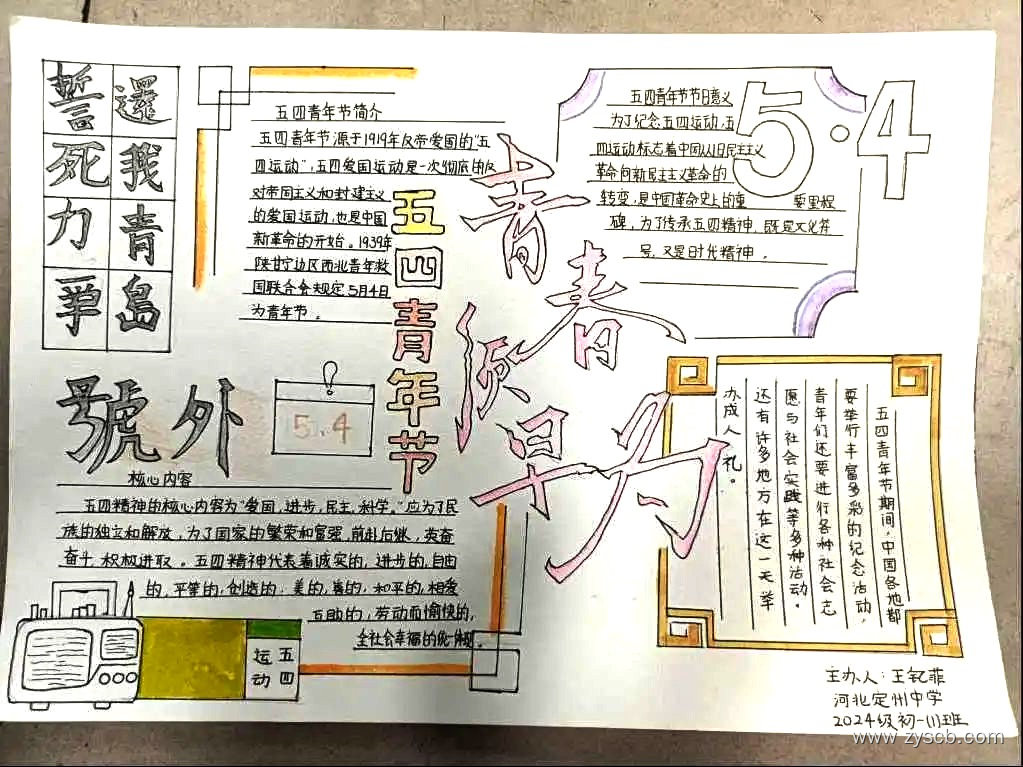 誓死力争
還我青島
五四青年节简介
五四青年节源于1919年反帝爱国的“五
四运动”，五四爱国运动是一次彻底的反
对帝国主义和封建主义
的爱国运动，也是中国
新革命的开始。1939年
陕甘宁边区西北青年救
国联合会规定5月4日
为青年节。
五四青年节
青春须早为
五四青年节节日意义
为了纪念五四运动，五
四运动标志着中国从旧民主主义
革命向新民主主义革命的
转变，是中国革命史上的重要里程
碑，为了传承五四精神，既是文化符
号，又是时代精神。
5·4
號外
5.4
核心内容
五四精神的核心内容为“爱国，进步，民主，科学。”应为了民
族的独立和解放，为了国家的繁荣和富强，前赴后继，英奋
奋斗，积极进取。五四精神代表着诚实的，进步的，自由
的，平等的，创造的；美的，善的，和平的，相爱
互助的，劳动而愉快的，
全社会幸福的
五四
运动
五四青年节期间，中国各地都
要举行丰富多彩的纪念活动，
青年们还要进行各种社会志
愿与社会实践等多种活动。
还有许多地方在这一天举
办成人礼。
主办人：王钇菲
河北定州中学
2024级初一(11)班
www.zyscb.com